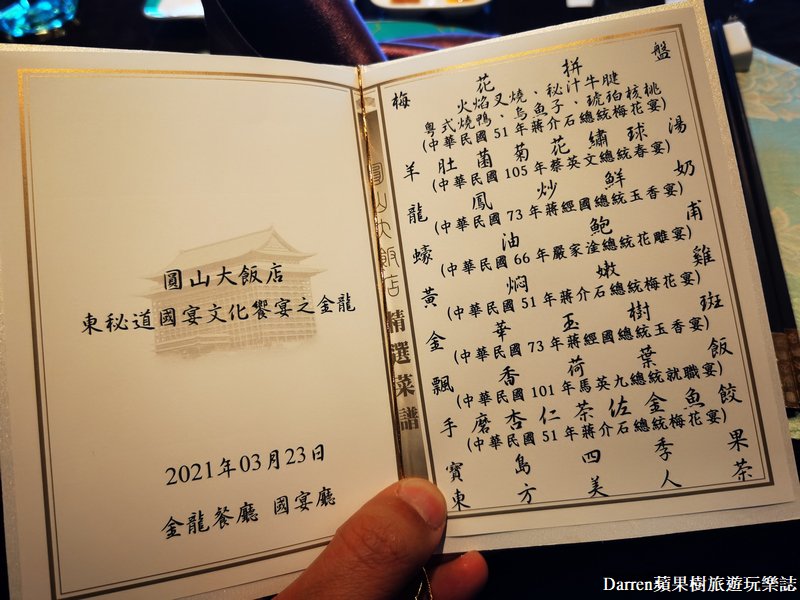 圓山大飯店
東秘道國宴文化饗宴之金龍
2021年03月23日
金龍餐廳 國宴廳
圓山大飯店
精選菜譜
梅花拼盤
火焰叉燒、秘汁牛腱
粵式燒鴨、烏魚子、琥珀核桃
(中華民國 51 年蔣介石總統梅花宴)
羊肚菌菊花繡球湯
(中華民國 105 年蔡英文總統春宴)
龍鳳炒鮮奶
(中華民國 73 年蔣經國總統玉香宴)
蠔油鮑甫
(中華民國 66 年嚴家淦總統花雕宴)
黃燜嫩雞
(中華民國 51 年蔣介石總統梅花宴)
金華玉樹斑
(中華民國 73 年蔣經國總統玉香宴)
飄香荷葉飯
(中華民國 101 年馬英九總統就職宴)
手磨杏仁茶佐金魚餃
(中華民國 51 年蔣介石總統梅花宴)
寶島四季果
東方美人茶
Darren蘋果樹旅遊玩樂誌